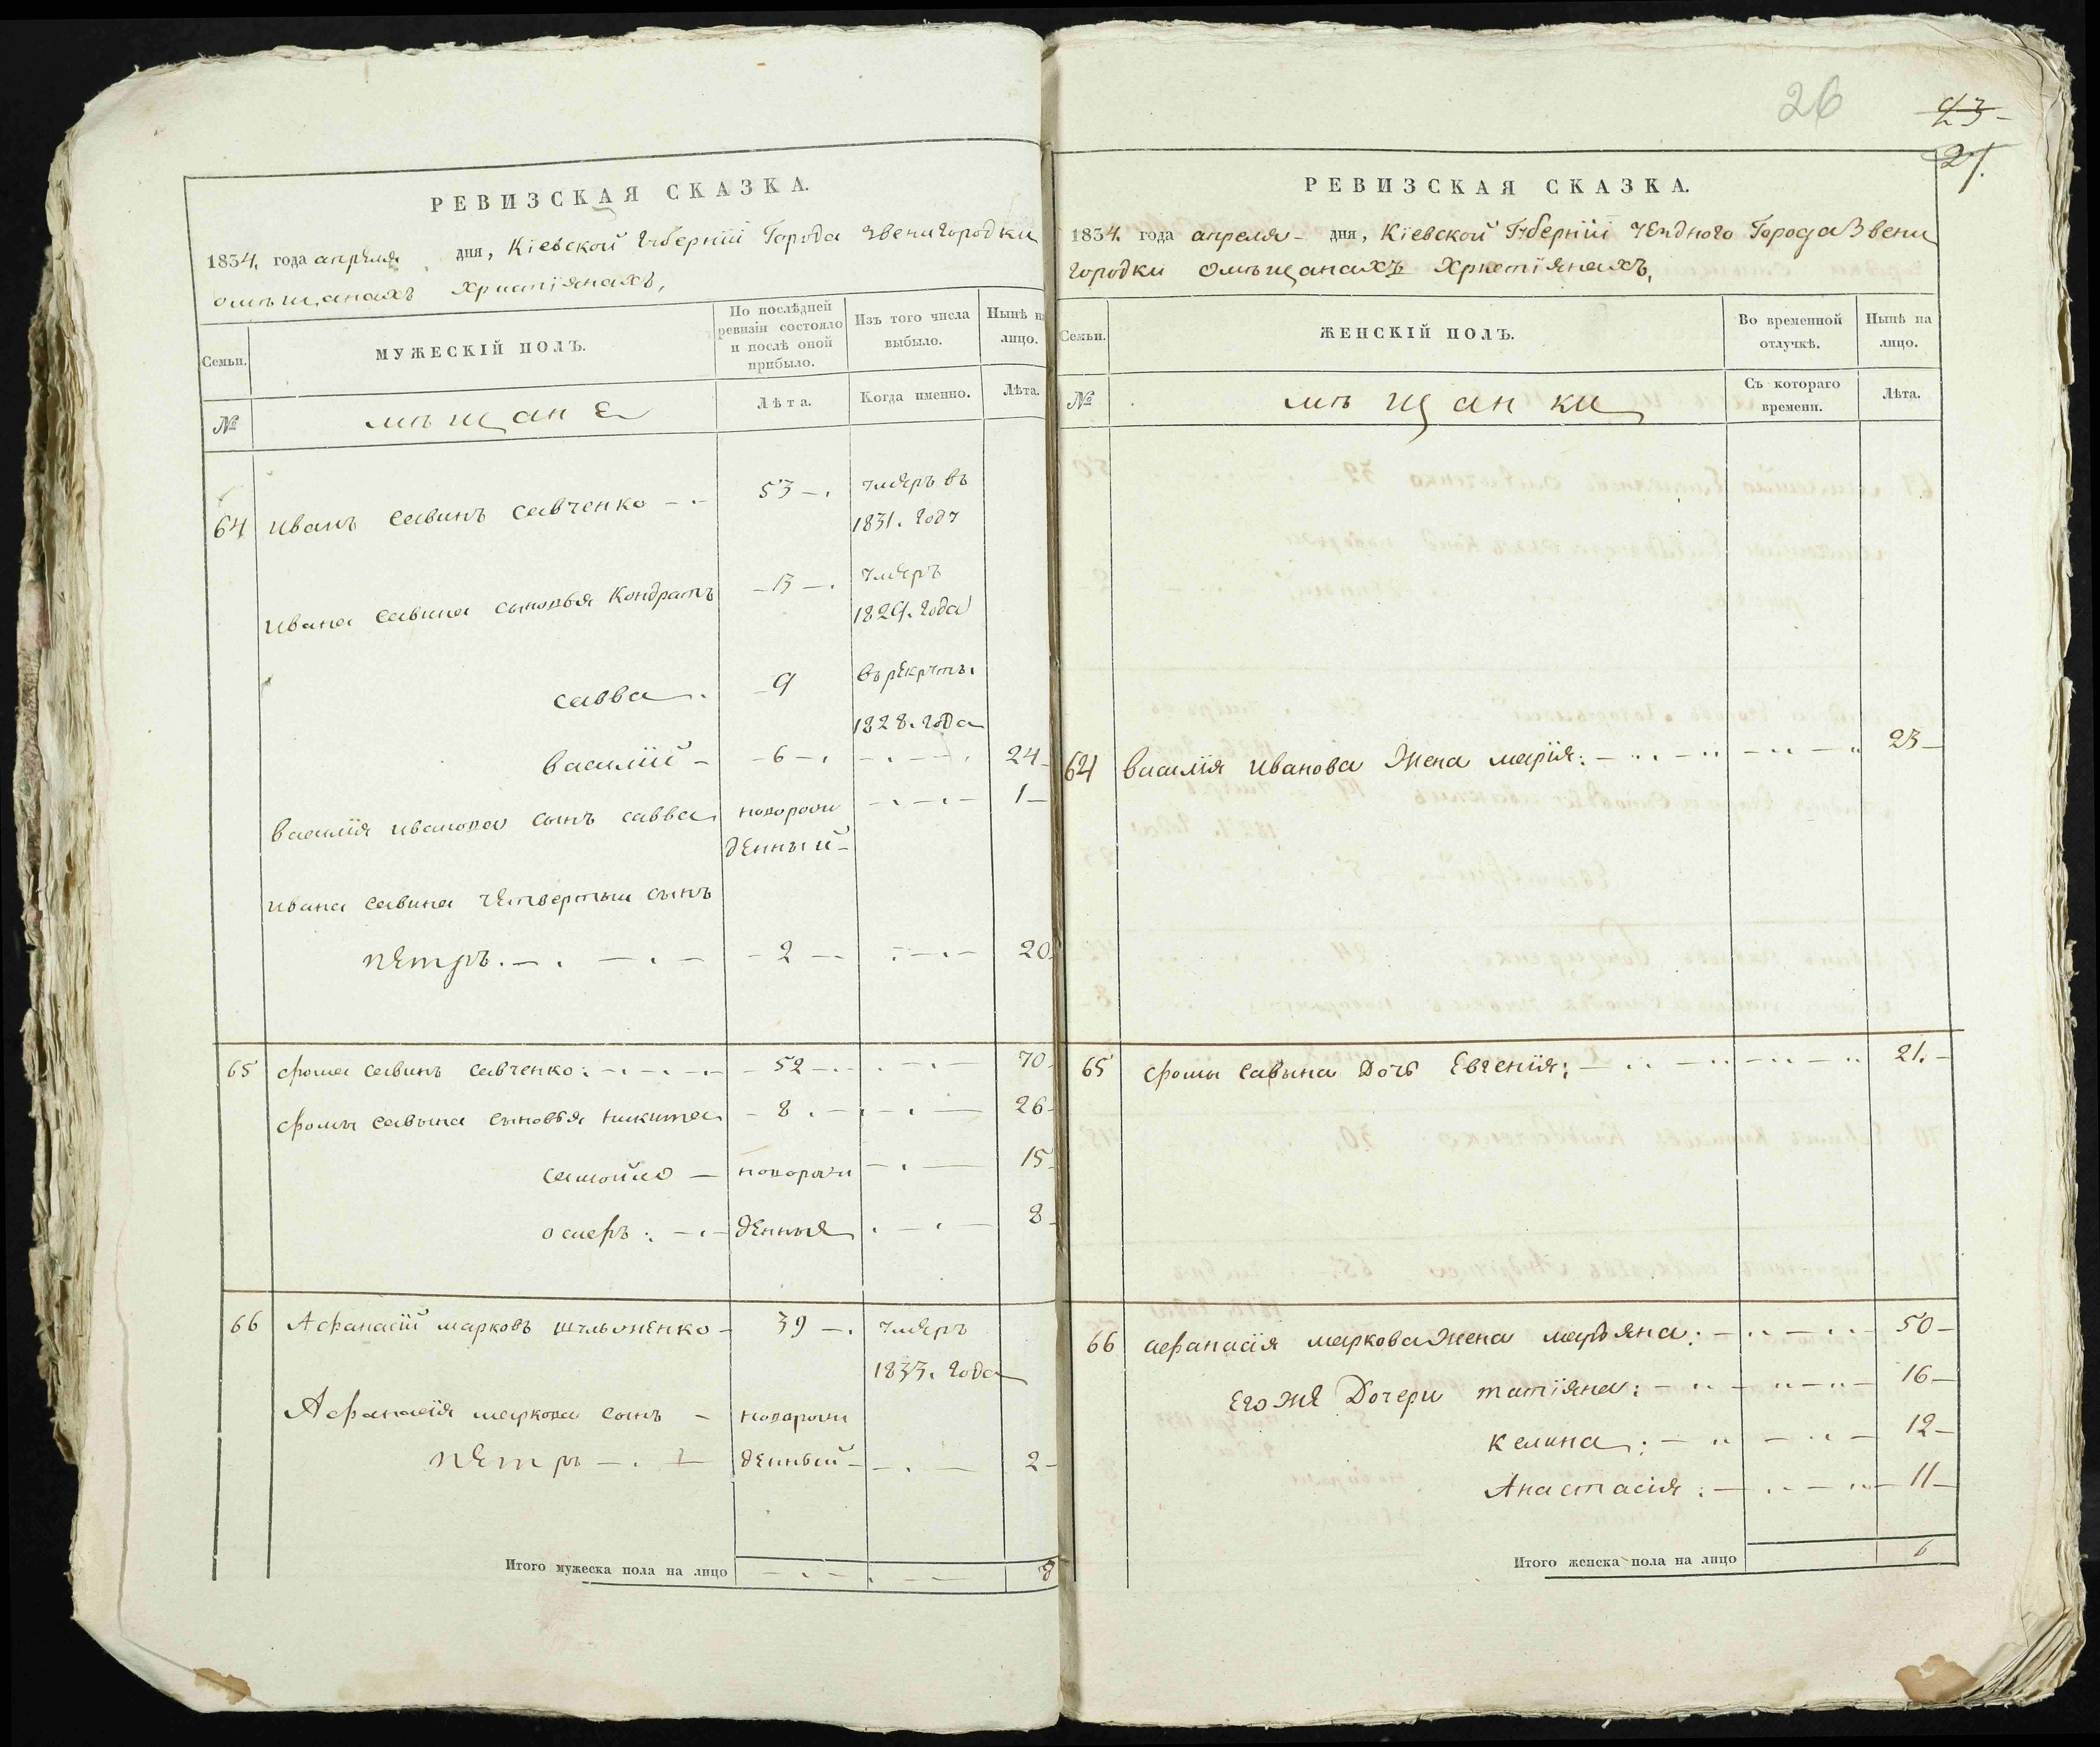 26
23
21.
РЕВИЗСКАЯ СКАЗКА.
1834. года апреля дня, Кіевской Губерніи Города Звенигородки
омѣщанахъ Христіянахъ,
Семьи. МУЖЕСКІЙ ПОЛЪ. По послѣдней ревизіи состояло и послѣ оной прибыло. Изъ того числа выбыло. Нынѣ на лицо.
№ мѣщанѣ Лѣта. Когда именно. Лѣта.
64 Иванъ Савинъ Савченко 53 умеръ въ
1831. Году
Ивана Савина сыновья Кондратъ 13 умеръ
1829. года
Савва 9 въ рекруты
1828. года
Василій 6 24
Василія Иванова сынъ Савва новорож 1
денный
Ивана Савина четвертый сынъ
Петръ 2 20
65 Фома Савинъ Савченко 52 70
Фомы Савына сыновья Никита 8 26
Самойло новорож 15
Осиеръ денныя 8
66 Афанасій Марковъ 39 умеръ
1833. года
Афанасія Маркова сынъ новорож
Петръ денный 2
Итого мужеска пола на лицо 8
РЕВИЗСКАЯ СКАЗКА.
1834. года апреля дня, Кіевской Губерніи Уездного Города Звени
городки Омѣщанахъ Христіянахъ,
Семьи. ЖЕНСКІЙ ПОЛЪ. Во временной отлучкѣ. Нынѣ на лицо.
№ мѣщанки Съ котораго времени. Лѣта.
64 Василія Иванова Жена Марія: 23
65 Фомы Савына Дочь Евгенія: 21.
66 Афанасія Маркова Жена Марьяна: 50
Его же Дочери Татіяна: 16
Келина: 12
Анастасія: 11
Итого женска пола на лицо 6